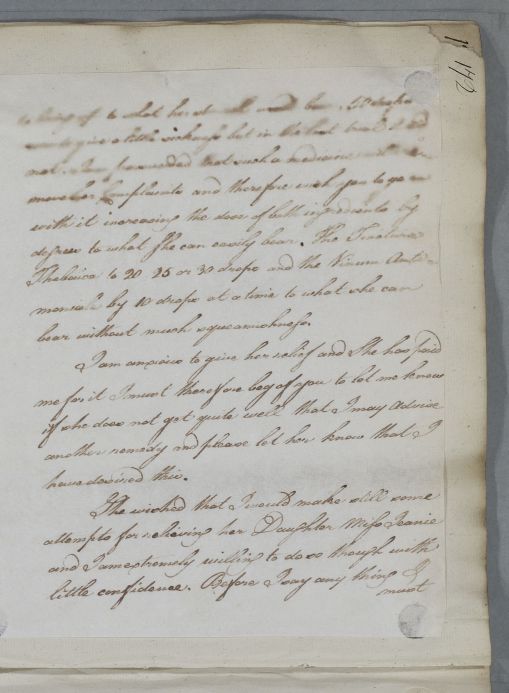 142
to what her
to give a little sickness but in the last
not. I am perswaded that such a medicine
move her Complaints and therefore wish you to go on
with it increasing the dose of both ingredients by
degrees to what She can easily bear. The Tinctura
Thebaica to 20 25 or 30 drops and the Vinum Anti-
moniale by 10 drops at a time to what she can
bear without much squeamishness.
I am anxious to give her relief and She has paid
me for it I must therefore beg of you to let me know
if she does not get quite well that I may advise
another remedy and please let her know that I
have desired this.
She wished that I would make still some
attempts for relieving her Daughter Miss Jeanie
and I am extremely willing to do so though with
little confidence. Before I say any thing I
must